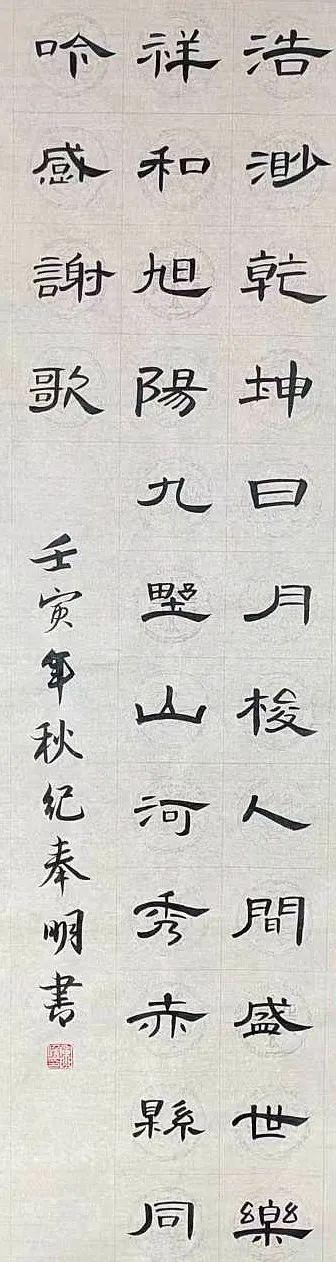 浩渺乾坤日月梭人間盛世樂
祥和旭陽九墅山河秀赤縣同
吟感謝歌
壬寅年秋紀奉明書